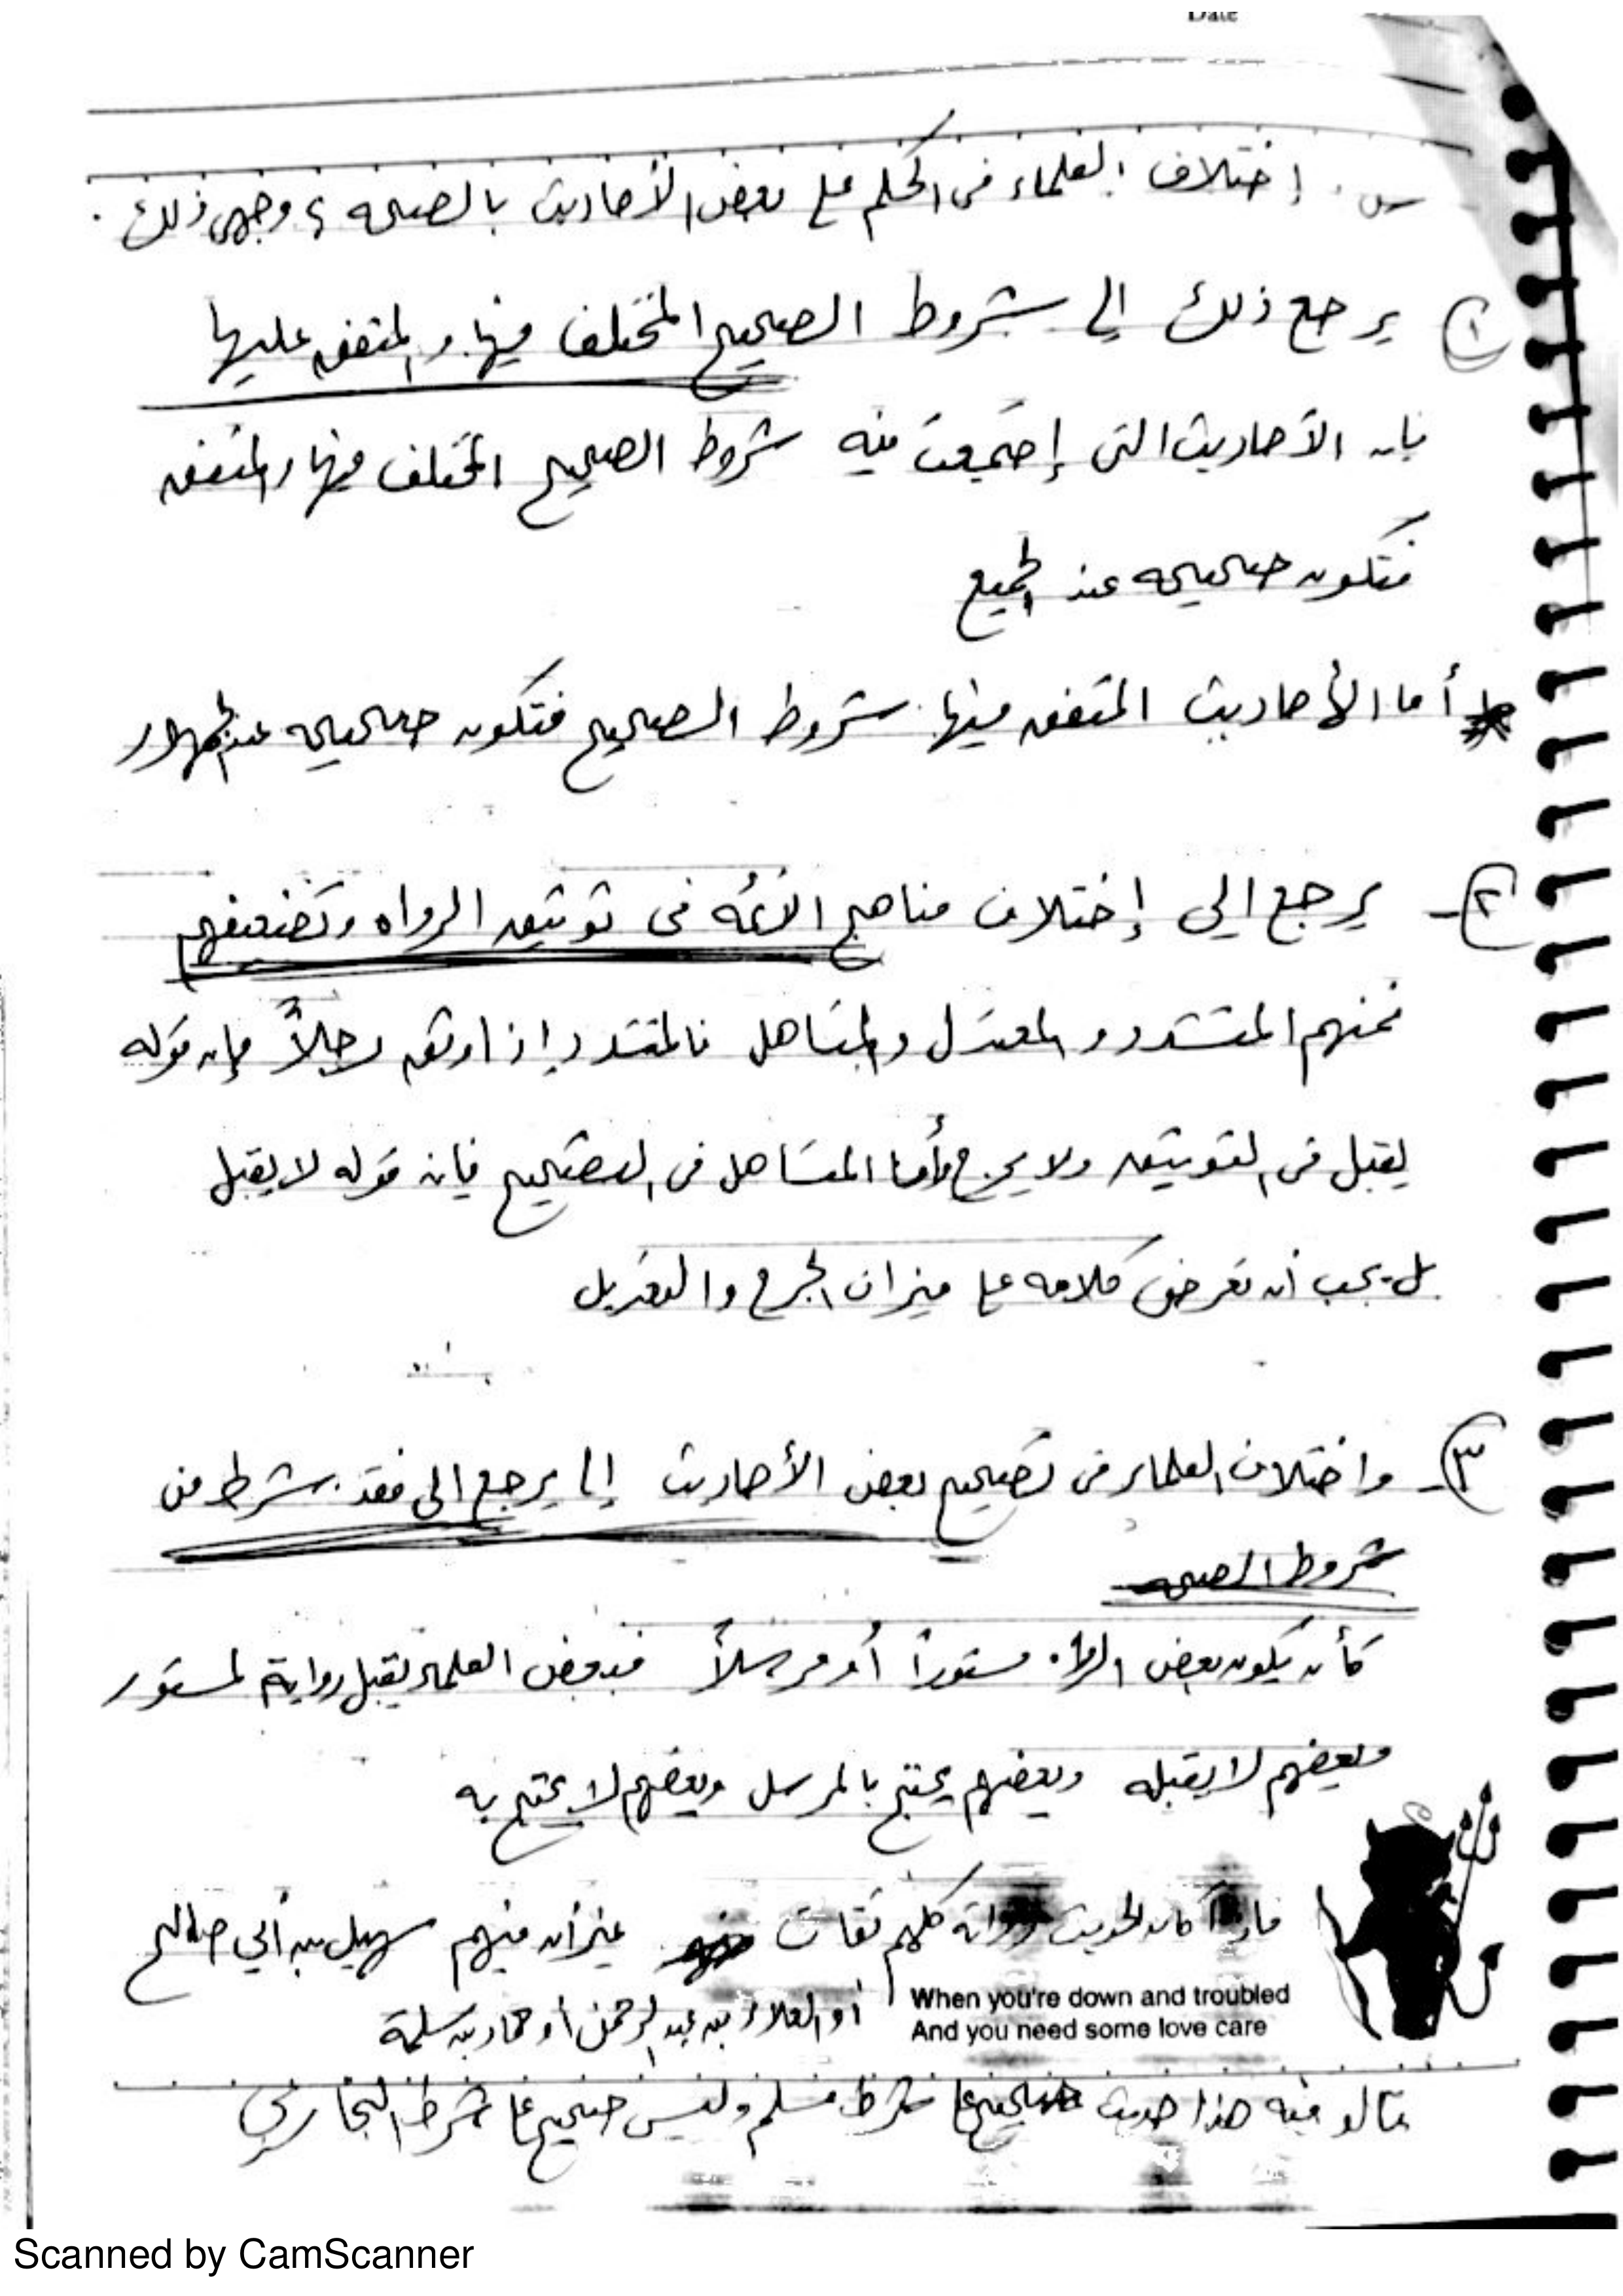 Date
س. إختلاف العلماء فى الحكم على بعض الأحاديث بالصحه ؟ وجهى ذلك .
١ يرجع ذلك إلى شروط الصحيح المختلف فيها والمتفق عليها
فإن الأحاديث التى إجتمعت فيه شروط الصحيح المختلف فيها والمتفق
فتكون صحيحه عند الجميع
أما الأحاديث المتفق فيها شروط الصحيح فتكون صحيحه عند الجمهور
٢- يرجع الى إختلاف مناهج الأئمه فى توثيق الرواه وتضعيفهم
فمنهم المتشدد والمعتدل والمتساهل فالمتشدد إذا وثق رجلاً فإن قوله
يقبل فى التوثيق ولا يجرح وأما المتساهل فى التصحيح فإن قوله لا يقبل
بل يجب أن نعرض كلامه على ميزان الجرح والتعديل
٣- واختلاف العلماء فى تصحيح بعض الأحاديث إنما يرجع الى فقد شرط من
شروط الصحه
كأن يكون بعض الرواه مستوراً أو مرسلاً فبعض العلماء يقبل رواية المستور
وبعضهم لا يقبله وبعضهم يحتج بالمرسل وبعضهم لا يحتج به
فإذا كان الحديث رواته كلهم ثقات غير أن فيهم سهيل بن أبي صالح
أو العلاء بن عبد الرحمن أو حماد بن سلمة
When you're down and troubled
And you need some love care
قالو فيه هذا حديث صحيح على شرط مسلم وليس صحيح على شرط البخارى
Scanned by CamScanner